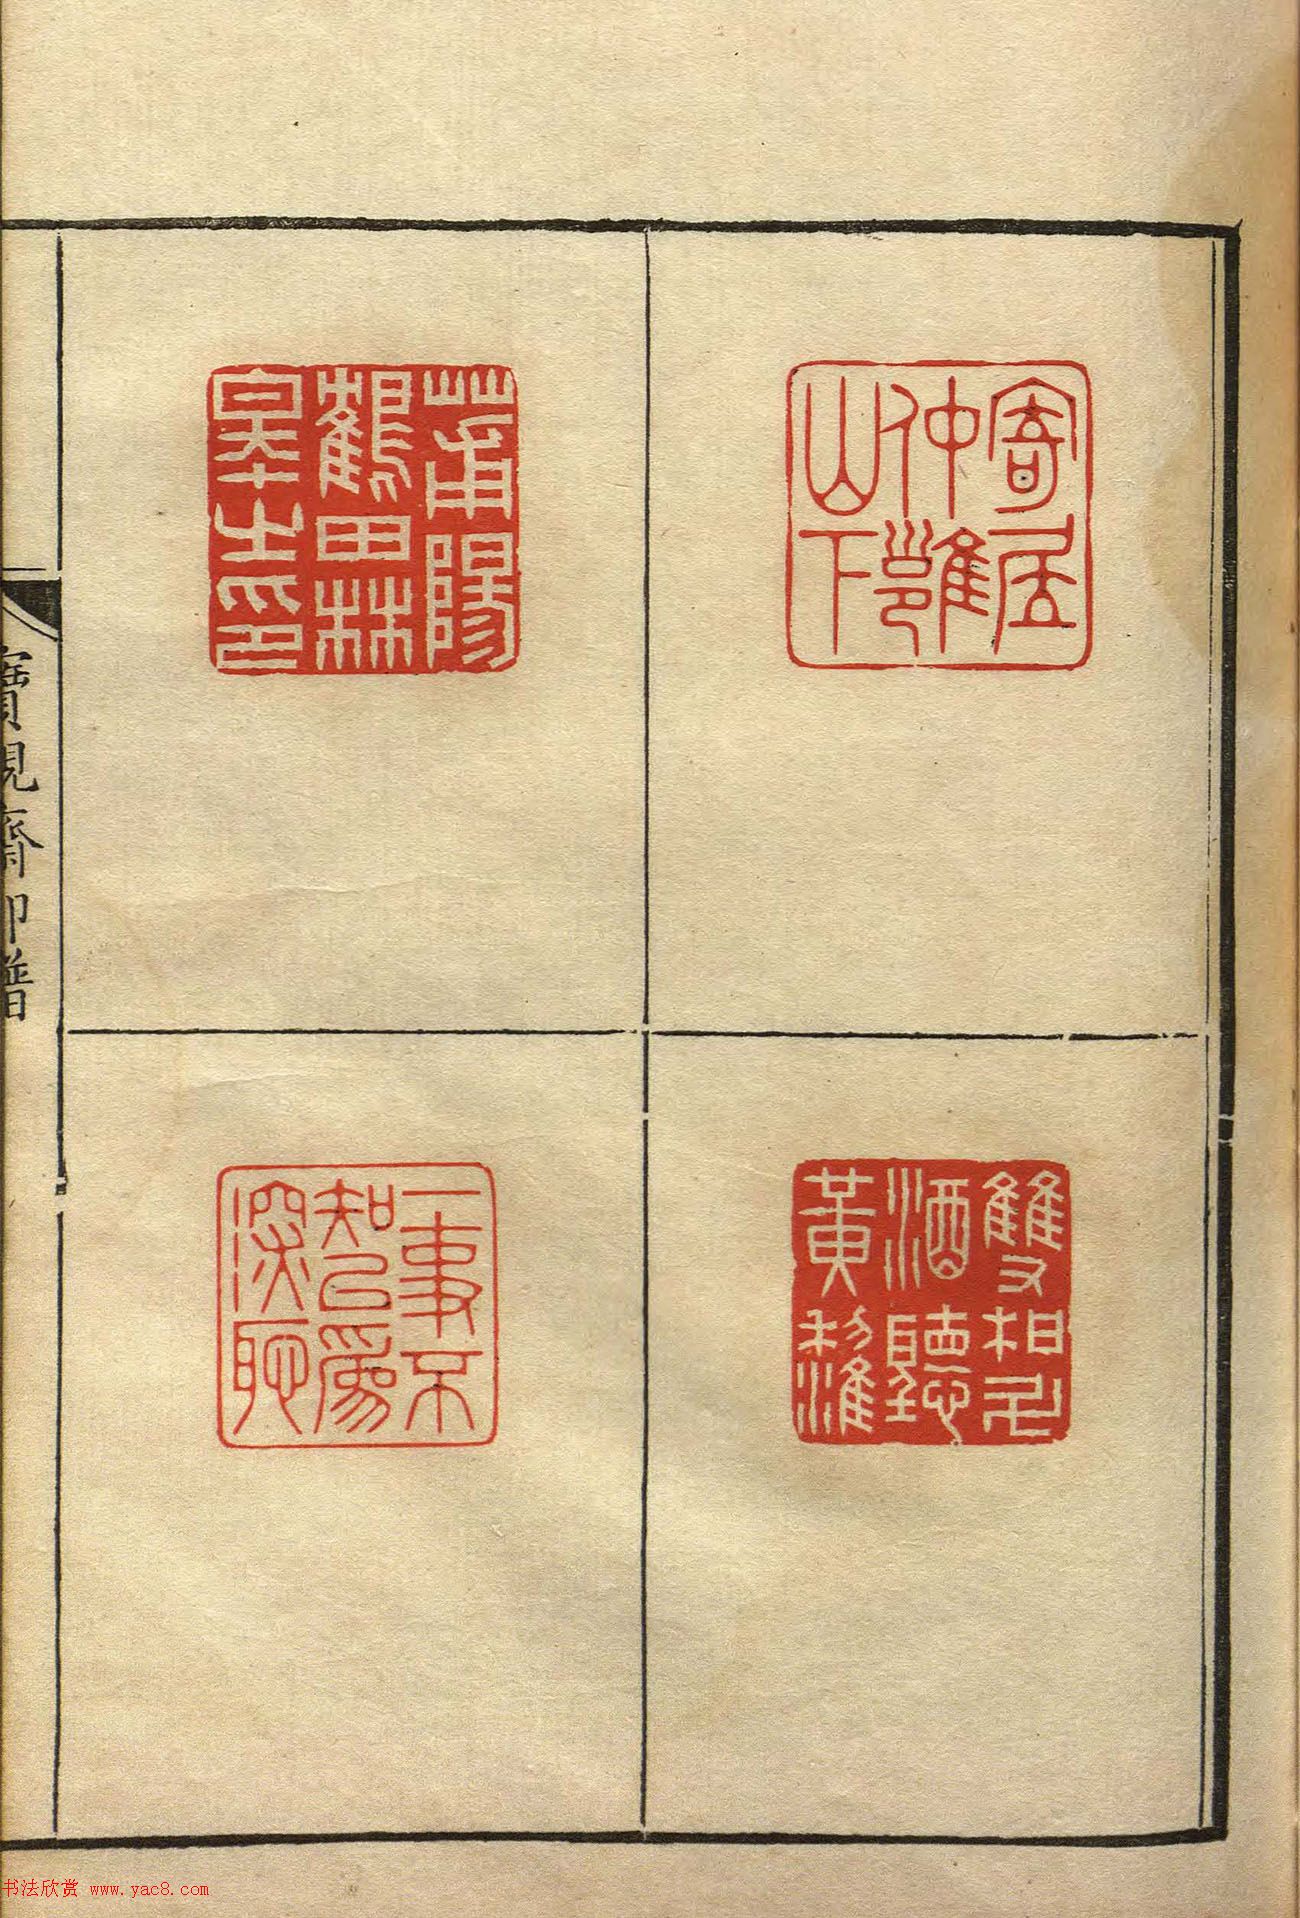 寄居
仲雝
山下
莆陽
鶴田林
皋之印
雙柑斗
酒聽
黃鸝
一事不
知己為
深恥
寶硯齋印譜
书法欣赏 www.yac8.com